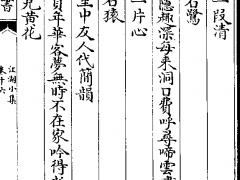 一段清
石鷺
隱趣深每來洞口費呼尋啼雲
一片心
石猿
里中友人代簡韻
年華客夢無時不在家吟得
九黃花
江湖小集
卷十六
書